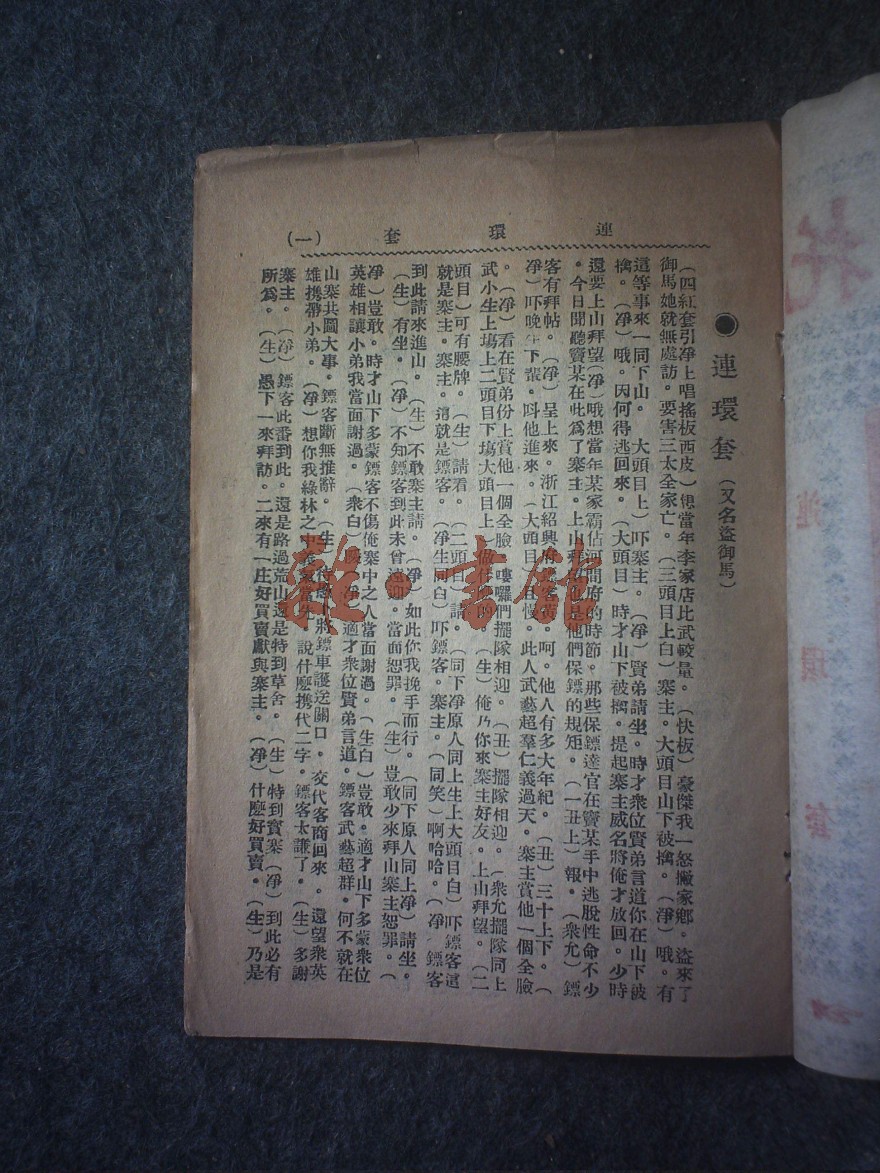 連環套 (一)
●連環套(又名盜御馬)
(四紅套引淨上唱搖板西皮)想當年李家店比武較量。(快板)豪傑我一怒搬家鄉。盜來了
御馬她就無處訪。要害三太全家亡。(三頭目上白)寨主。大頭目山下被擒。(淨)哦。有
這等事來一同下山。大頭目上)吓寨主。(淨)賢弟請坐。時才衆位賢弟言道你在山下被
擒。(淨)哦。因何得逃回來。(大頭目)時才山下被擒。提起寨主威名將俺才放回。少時
還要上山拜望(淨)哦想當年某家霸佔河間府的時節。那些保鏢達官在竇某手中逃脫性命不少
。今日聞聽竇某在此爲了寨主。上山拜是他們保鏢的規矩。(一丑上)報。(衆允)鏢
客有拜帖。(淨)呈上來。浙江紹興府客黃。呵。他人有多大年紀。(丑)三十上下。(
淨)吓晚生下輩。叫他進來。(大頭目)且慢。此人武藝超羣仁義過天。寨主賞他一個全臉
。(淨)看在賢弟份上賞他一個全臉。嘍囉們擺隊相迎。(丑)擺隊相迎。(衆允擺隊同上
武小生上塲上二頭目下塲大頭目上)做什。(生)俺乃你來寨主好友。上山拜望。(二
頭目)可有腰牌。(生)請看。(二頭白)請。(同下淨原人同上生上大頭目白)吓鏢客這
就是寨主。寨主。這就是鏢客。(淨生同白)吓鏢客。寨主。(同笑)啊哈哈。(淨)鏢客
到此請來進山。(生)不敢寨主請。(淨)如此你我挽手而行。(同下原人同上淨)請坐。
(生)有坐。(淨)不知鏢客到此未曾遠迎。當面恕罪。(生)豈敢少來拜山寨主恕罪。(
淨)豈敢。時才山下多蒙鏢客不傷俺寨中之人當面謝過。(生白)豈敢。適才山下多蒙衆位
英雄相讓小弟我當面謝過。(衆白)(淨)適才衆位賢弟言道。鏢客武藝超群。何不就在
山寨共圖大事。鏢客斷無推辭。(生)將鏢車護送關口。交代客商回來。還望衆英
雄携帶小弟。(淨)想你我綠林之中當先。說什麽携代二字。鏢客太謙了。(生)多謝
寨主。(淨)鏢客此番到此。還是路過荒山還是特到草舍。(生)特到寳寨(淨)到此必有
所爲。(生)愚下一來拜訪。二來有一庄好買賣獻與寨主。(淨)什麽好買賣。(生)乃是
雜·書館
連環套